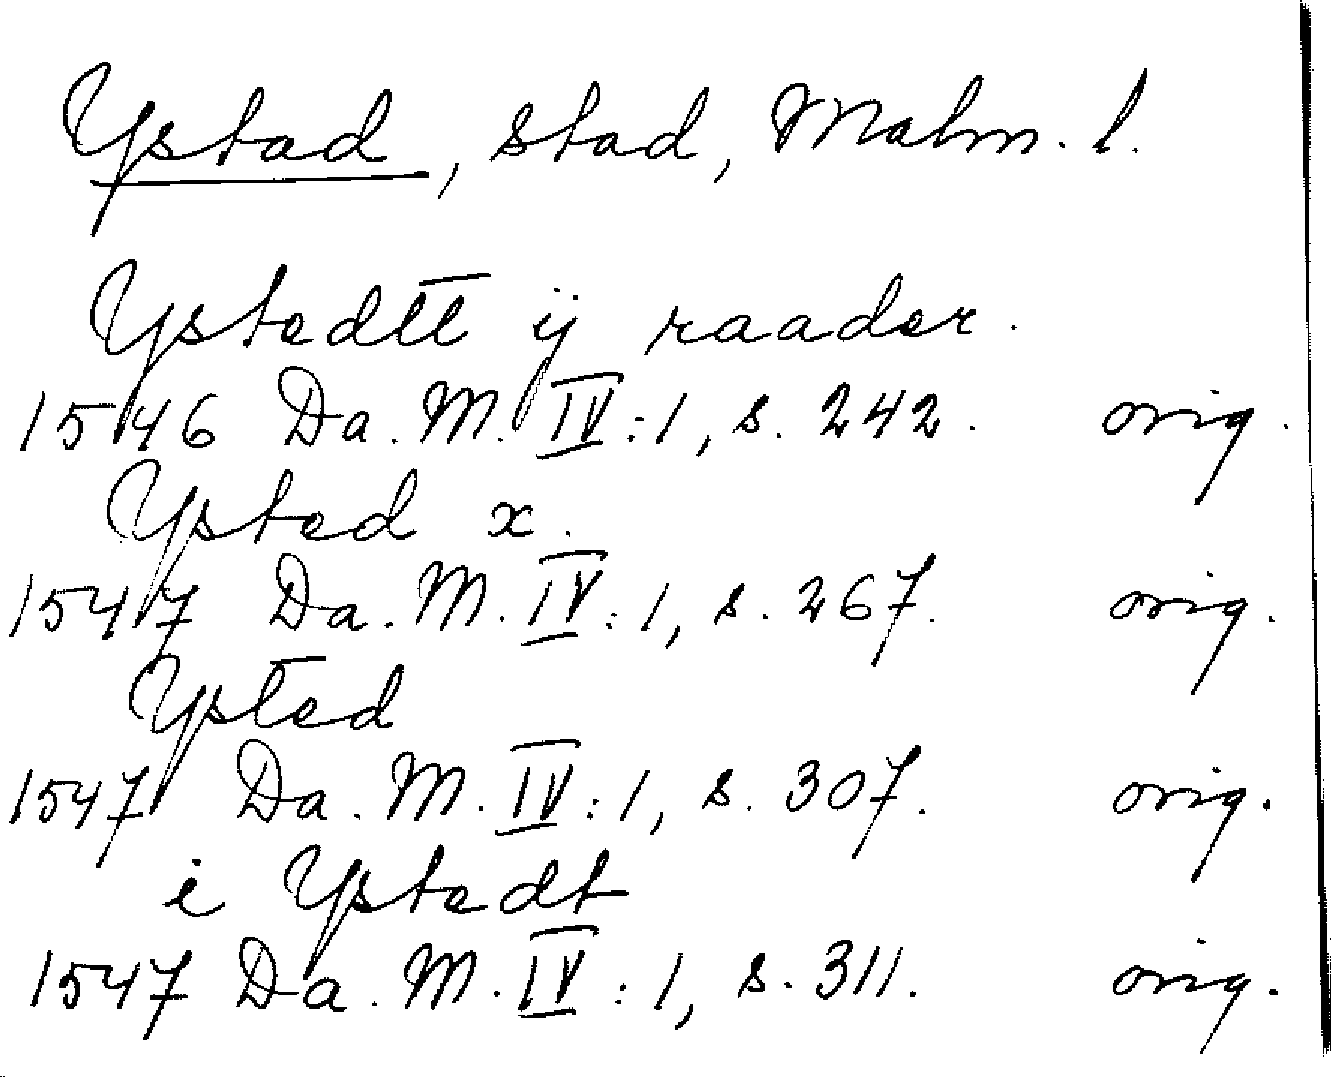 Ystad, stad, Malm. l.
Ystedtt ij raader.
1546 Da. M. IV:1, s. 242. orig.
Ysted x.
1547 Da. M. IV:1, s. 267. orig.
Ysted
1547 Da. M. IV:1, s. 307. orig.
i Ystedt
1547 Da. M. IV:1, s. 311. orig.